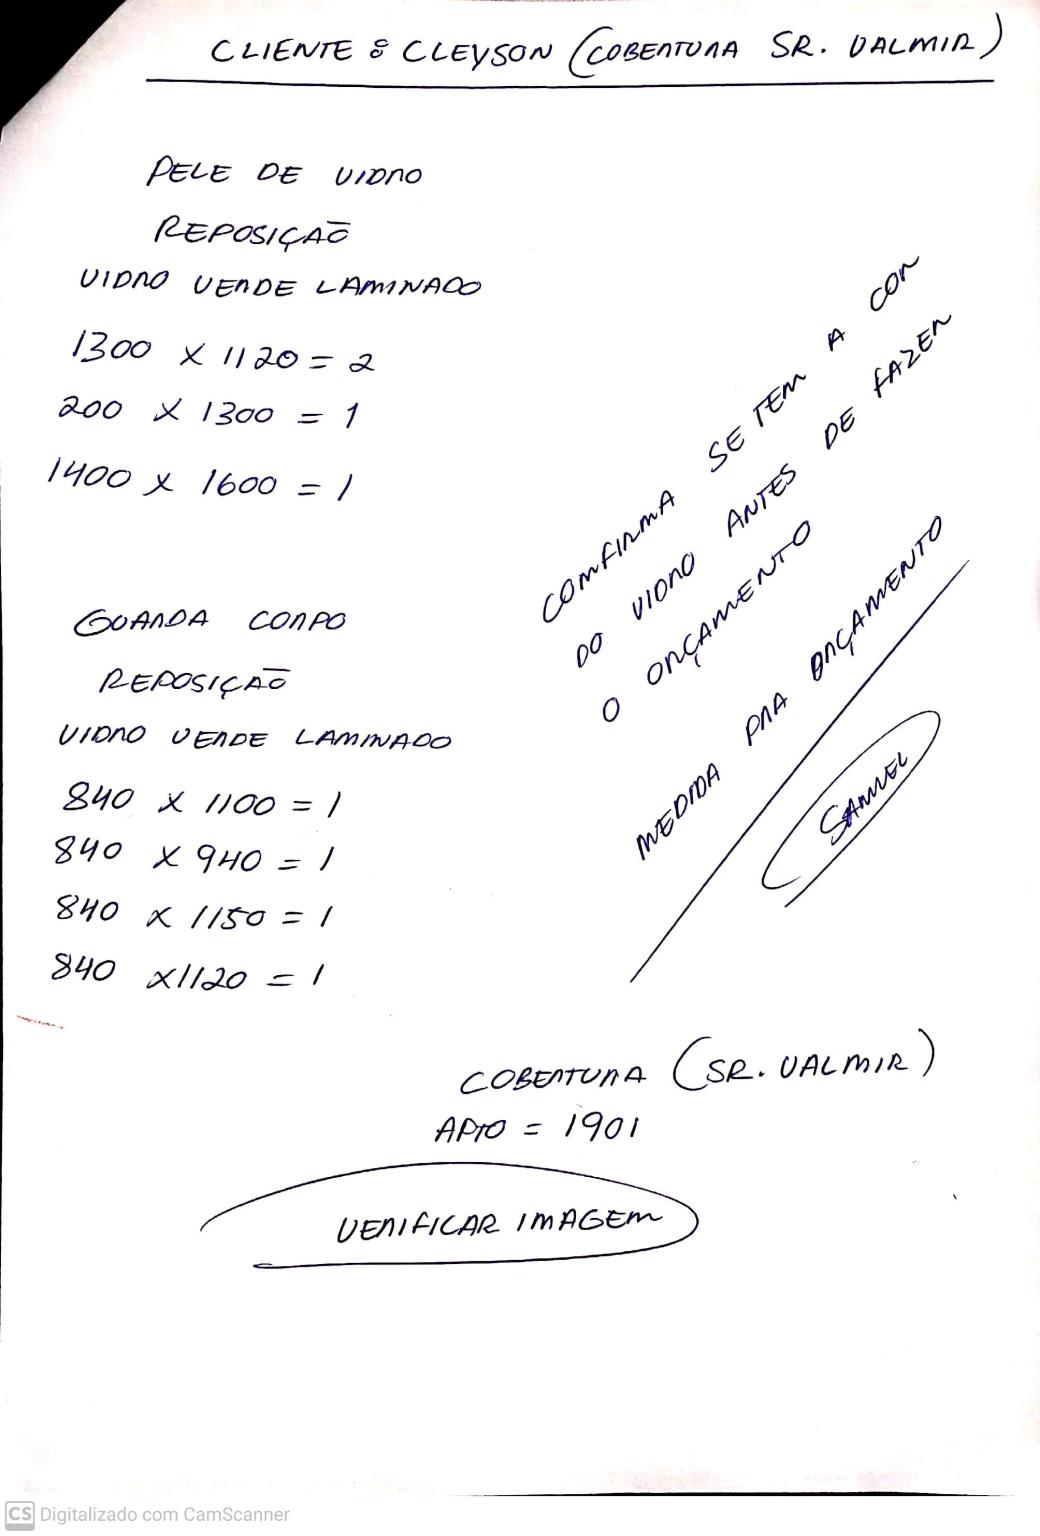 CLIENTE : CLEYSON (COBERTURA SR. VALMIR)
PELE DE VIDRO
REPOSIÇÃO
VIDRO VERDE LAMINADO
1300 X 1120 = 2
200 X 1300 = 1
1400 X 1600 = 1
COMFIRMA SE TEM A COR
DO VIDRO ANTES DE FAZER
O ORÇAMENTO
MEDIDA PRA ORÇAMENTO
SAMUEL
GUARDA CORPO
REPOSIÇÃO
VIDRO VERDE LAMINADO
840 X 1100 = 1
840 X 940 = 1
840 X 1150 = 1
840 X 1120 = 1
COBERTURA (SR. VALMIR)
APTO = 1901
VERIFICAR IMAGEM
CS Digitalizado com CamScanner